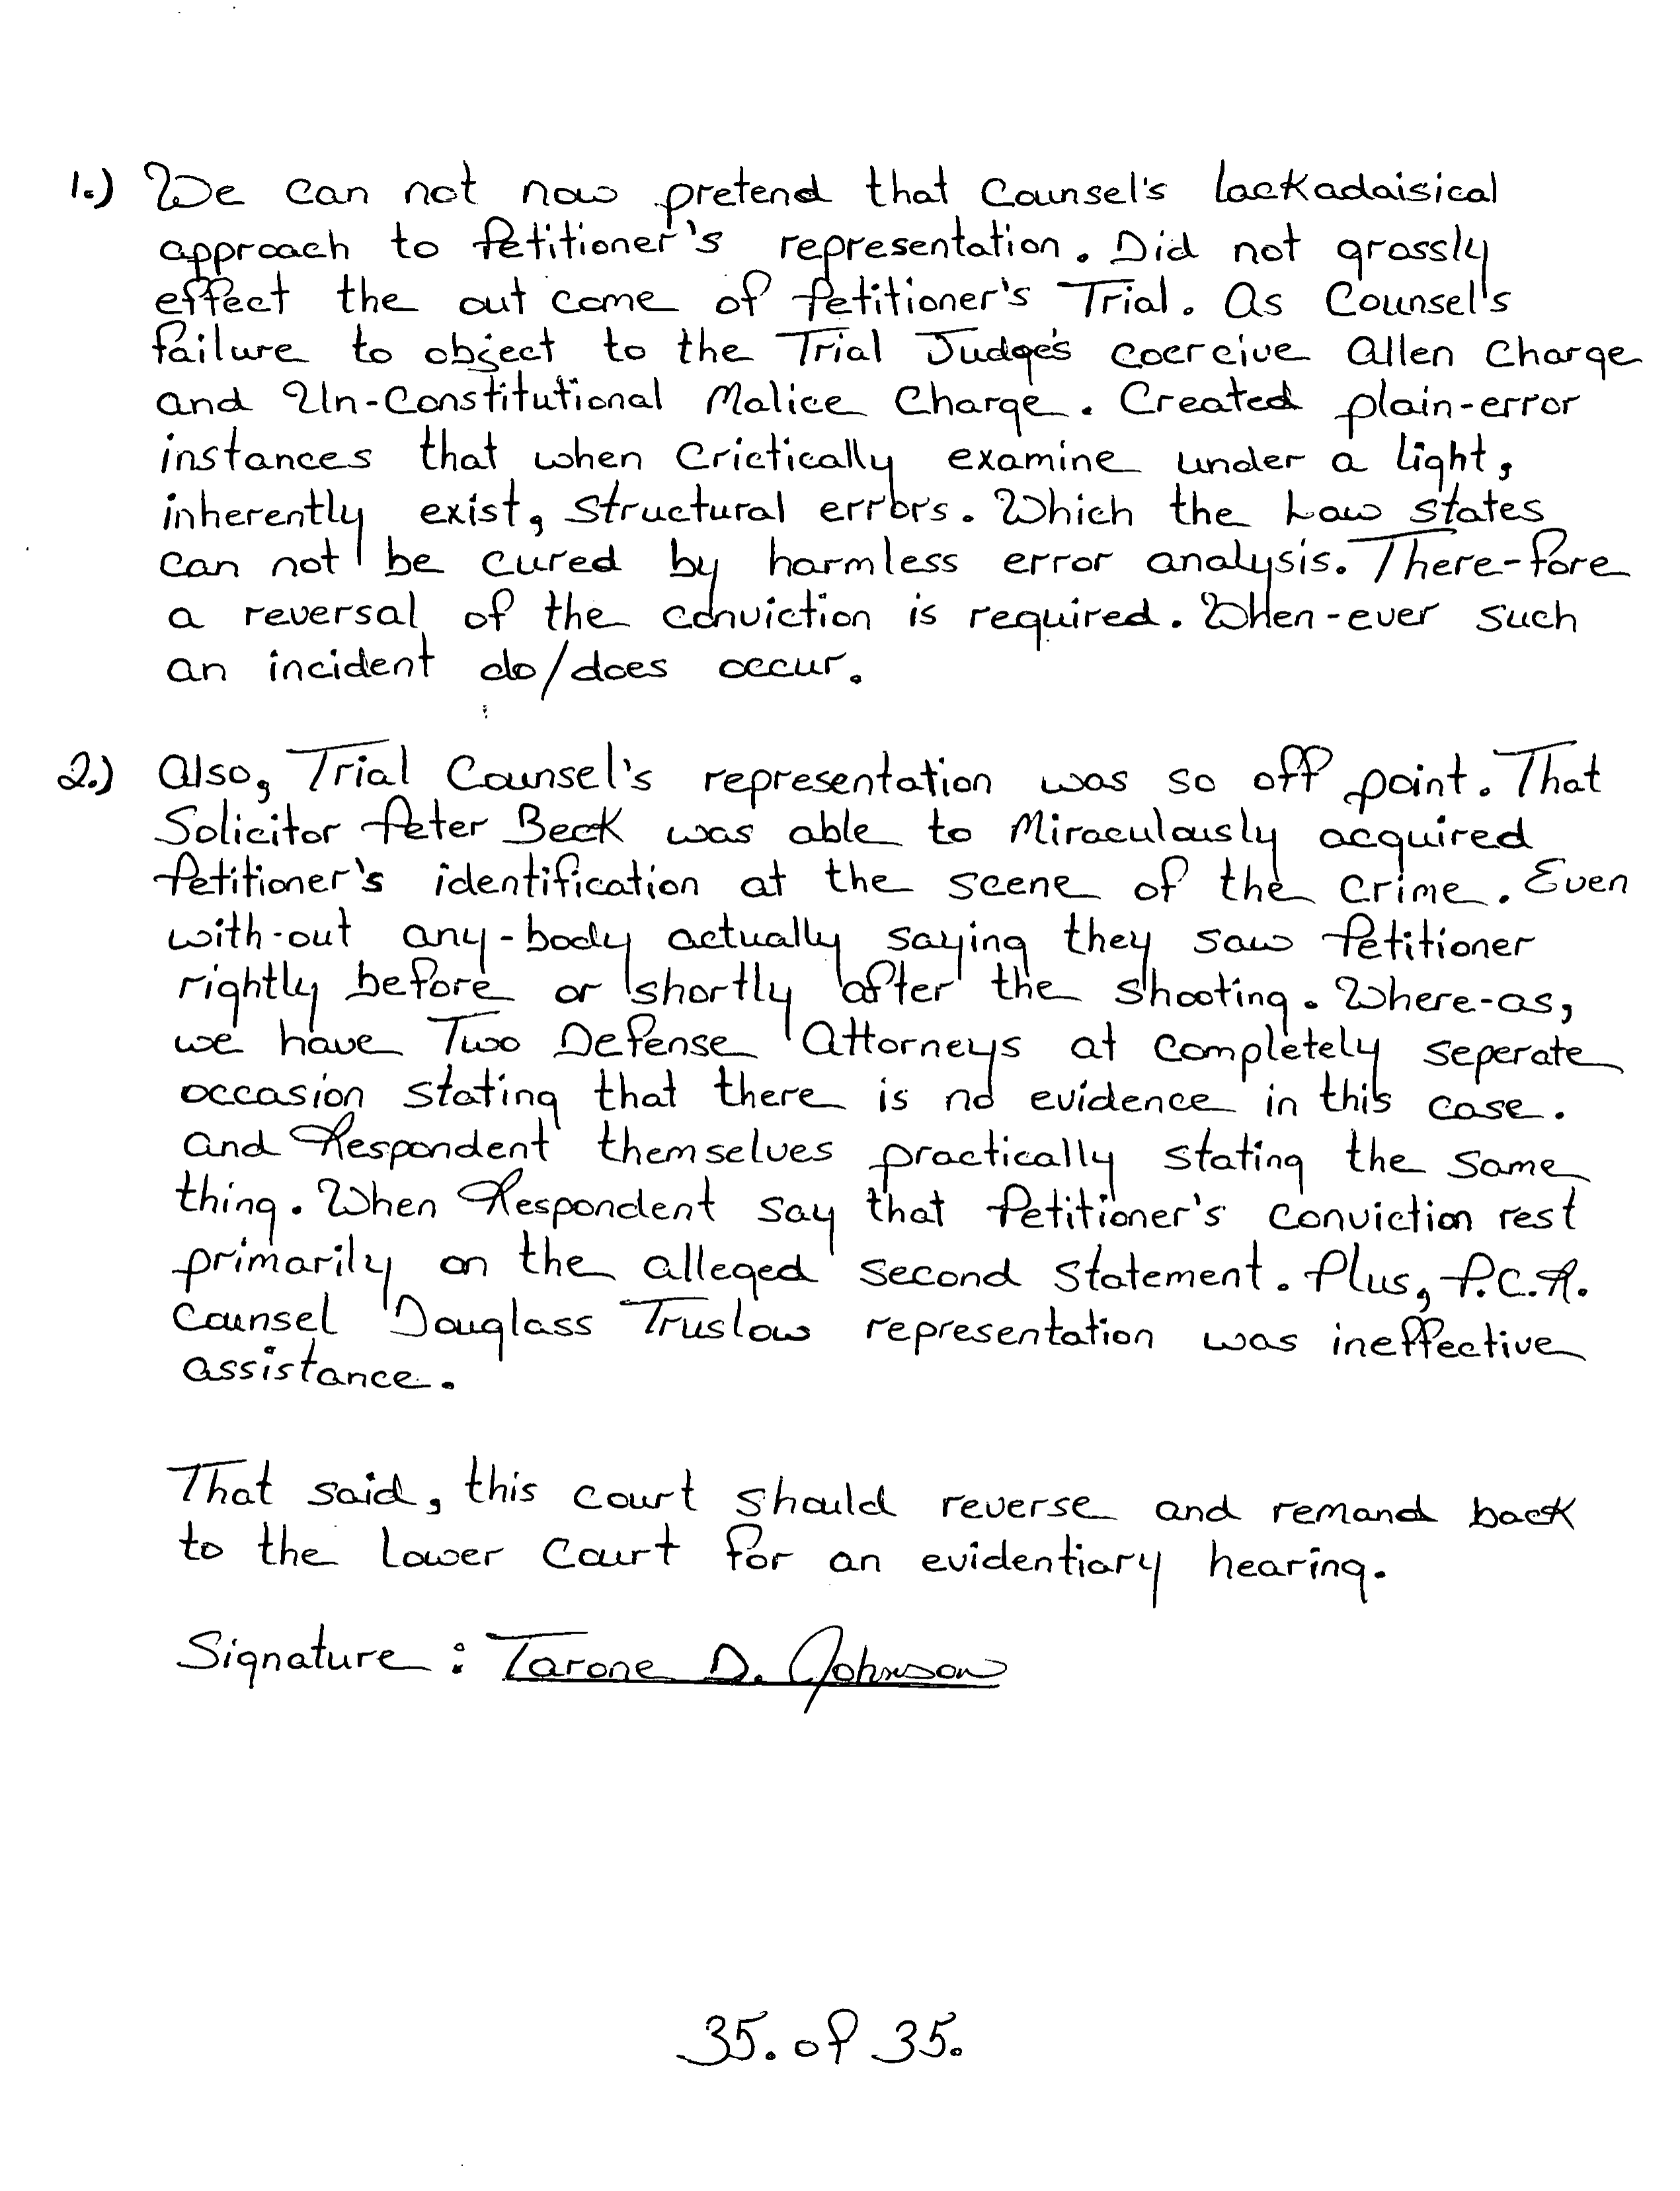 1.) We can not now pretend that Counsel's lackadaisical
approach to Petitioner's representation. Did not grossly
effect the out come of Petitioner's Trial. As Counsel's
failure to object to the Trial Judge's coercive Allen Charge
and Un-Constitutional Malice Charge. Created plain-error
instances that when Crictically examine under a light,
inherently exist, structural errors. Which the Law states
can not be cured by harmless error analysis. There-fore
a reversal of the conviction is required. When-ever such
an incident do/does occur.
2.) Also, Trial Counsel's representation was so off point. That
Solicitor Peter Beck was able to Miraculously acquired
Petitioner's identification at the scene of the Crime. Even
with-out any-body actually saying they saw Petitioner
rightly before or shortly after the shooting. Where-as,
we have Two Defense Attorneys at completely seperate
occasion stating that there is no evidence in this case.
And Respondent themselves practically stating the same
thing. When Respondent say that Petitioner's conviction rest
primarily on the alleged second statement. Plus, P.C.R.
Counsel Douglass Truslow representation was ineffective
assistance.
That said, this court should reverse and remand back
to the lower Court for an evidentiary hearing.
Signature : Tarone D. Johnson
35. of 35.